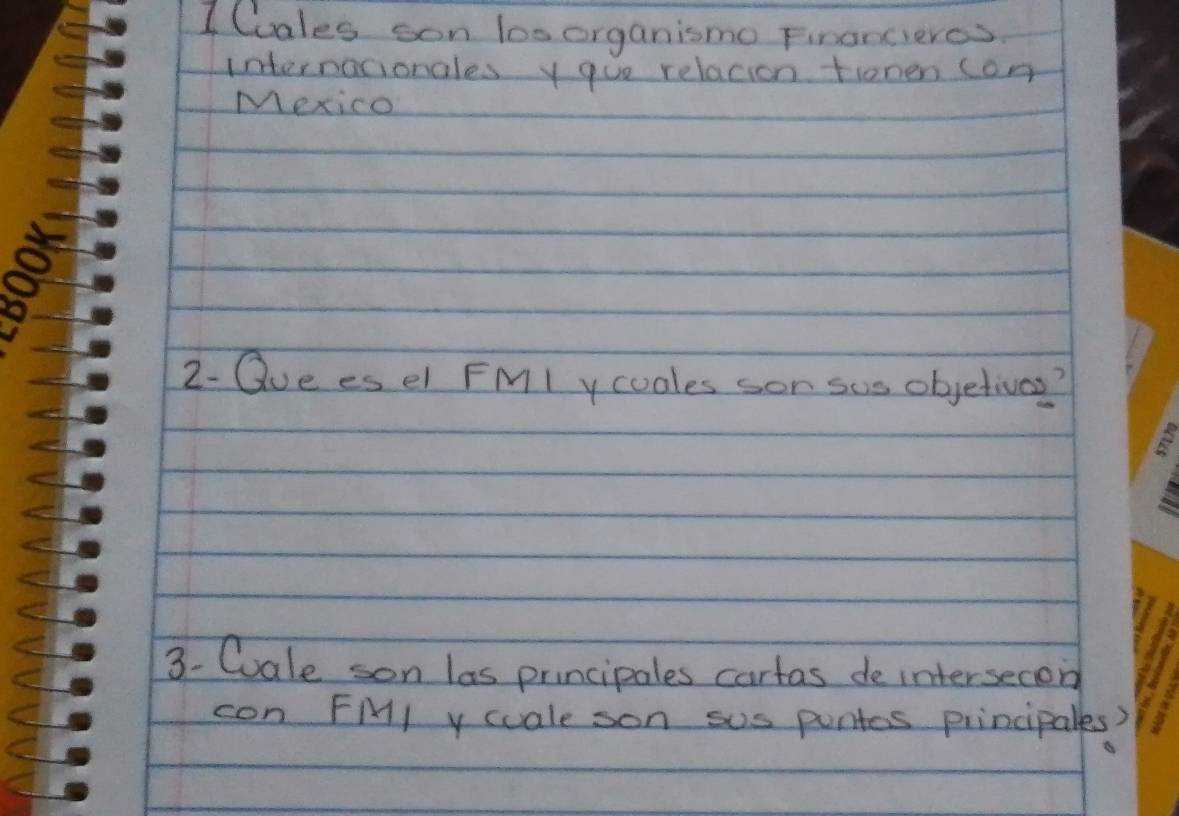 1 Cuales son los organismo Financieros.
internacionales y que relacion tienen con
Mexico
2- Que es el FMI y cuales son sus objetivos?
3- Cuale son las principales cartas de intersecon
con FMI y cuale son sus puntos principales?
EBOOK
57170